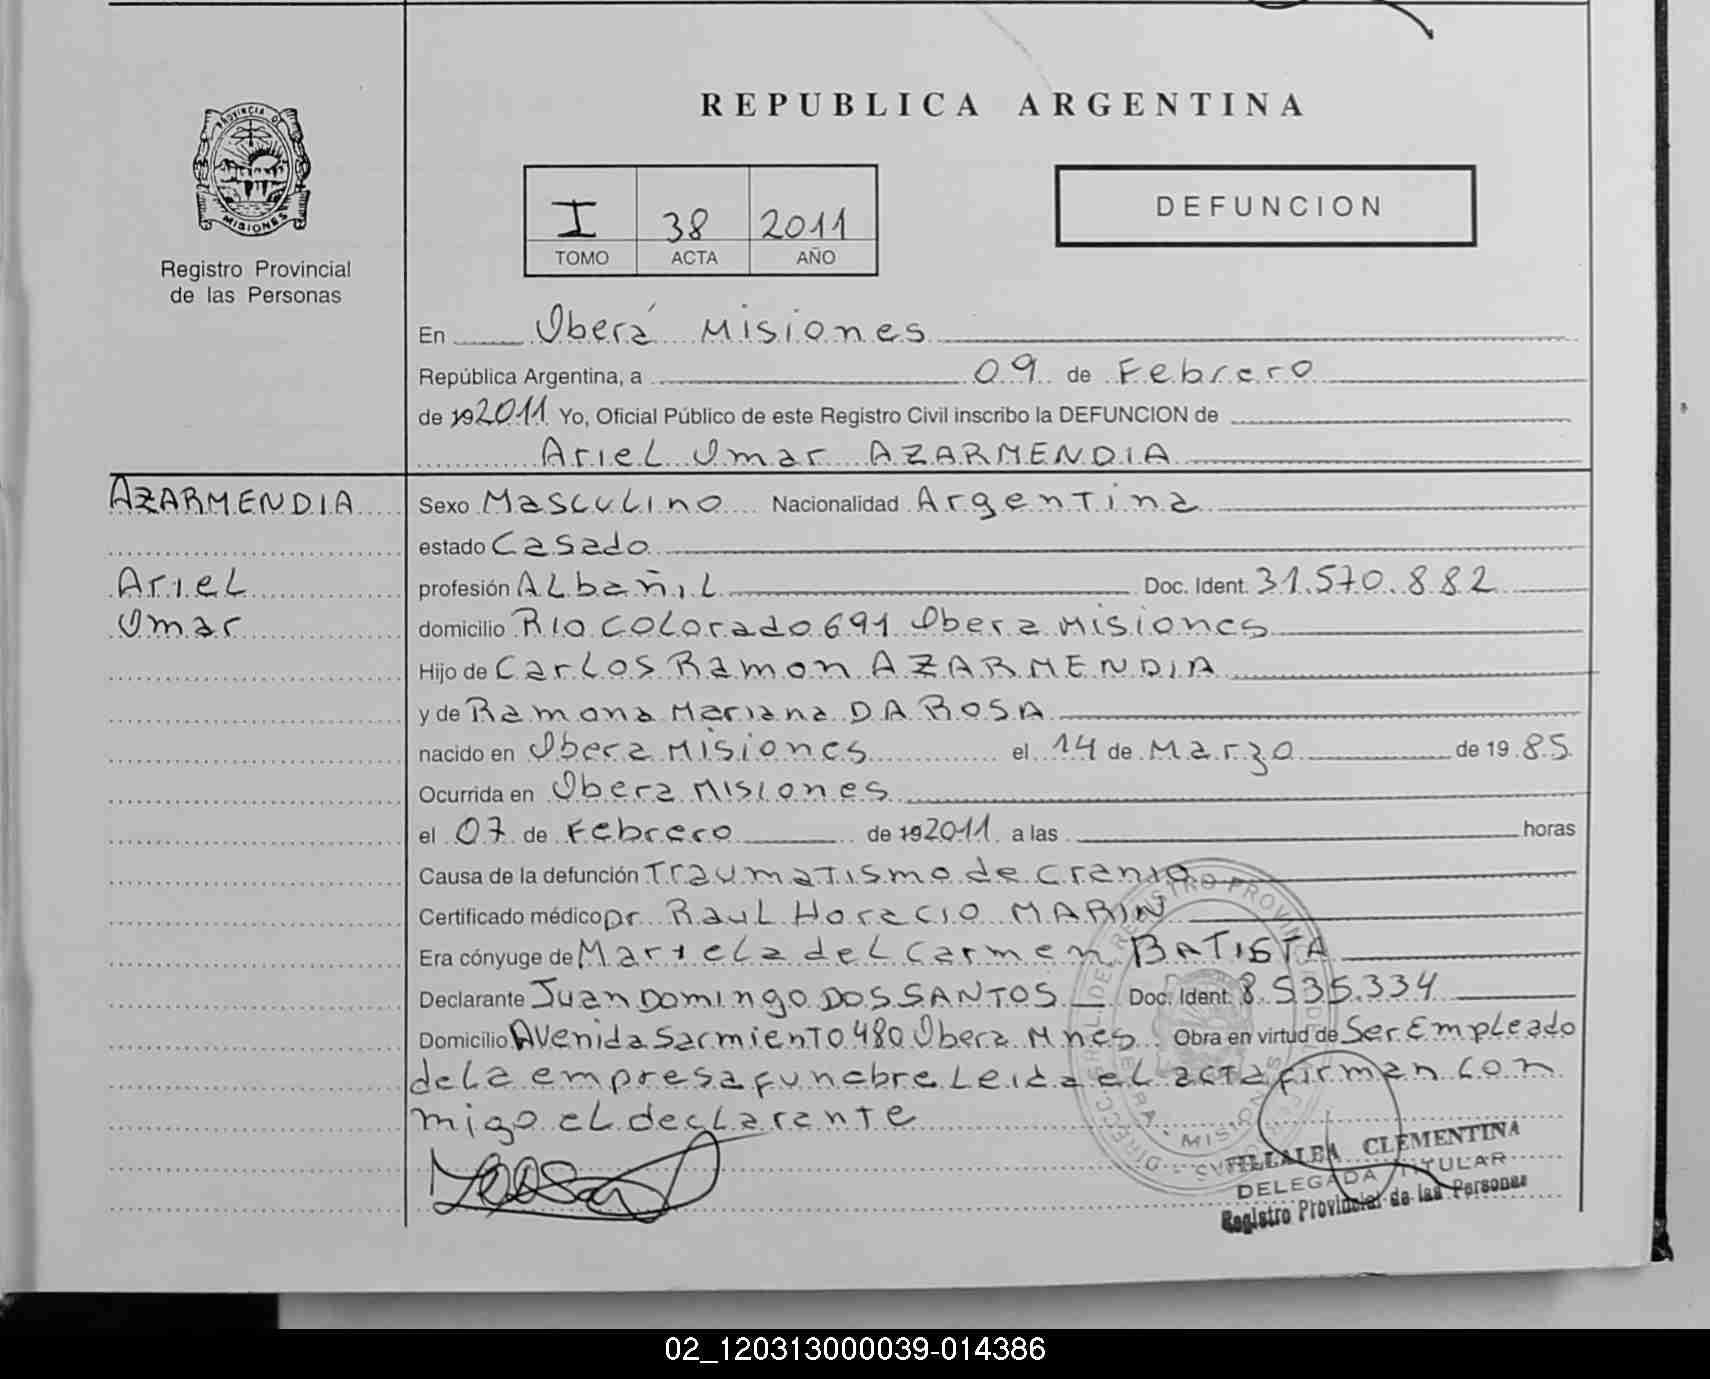 REPUBLICA ARGENTINA
PROVINCIA DE
MISIONES
Registro Provincial
de las Personas
I 38 2011
TOMO ACTA AÑO
DEFUNCION
En Oberá Misiones
República Argentina, a 09 de Febrero
de 19 2011 Yo, Oficial Público de este Registro Civil inscribo la DEFUNCION de
Ariel Omar AZARMENDIA
AZARMENDIA
Ariel
Omar
Sexo Masculino Nacionalidad Argentina
estado Casado
profesión Albañil Doc. Ident. 31.570.882
domicilio Rio Colorado 691 Obera Misiones
Hijo de Carlos Ramon AZARMENDIA
y de Ramona Mariana DA ROSA
nacido en Obera Misiones el 14 de Marzo de 19 85
Ocurrida en Obera Misiones
el 07 de Febrero de 19 2011 a las horas
Causa de la defunción Traumatismo de Cranio
Certificado médico Dr. Raul Horacio MARIN
Era cónyuge de Mariela del Carmen BATISTA
Declarante Juan Domingo DOS SANTOS Doc. Ident. 8.535.334
Domicilio Avenida Sarmiento 480 Obera Mnes Obra en virtud de Ser Empleado
de la empresa funebre Leida el acta firman con
migo el declarante
VILLALBA CLEMENTINA
DELEGADA TITULAR
Registro Provincial de las Personas
02_120313000039-014386